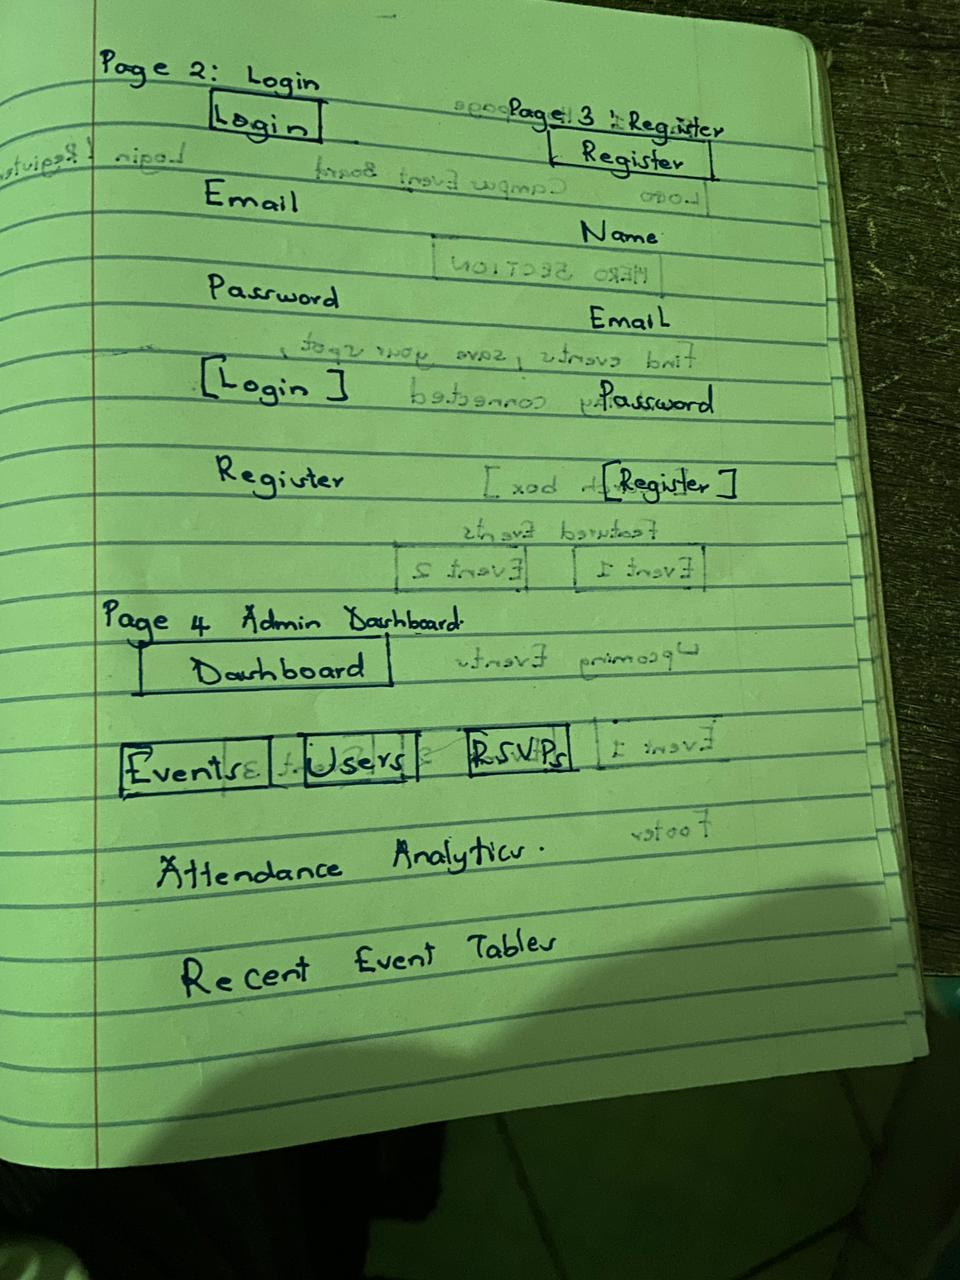 Page 2: Login
Login
Email
Password
[Login]
Register
Page 3: Register
Register
Name
Email
Password
[Register]
Page 4 Admin Dashboard
Dashboard
Events Users RSVPs
Attendance Analytics.
Recent Event Tables